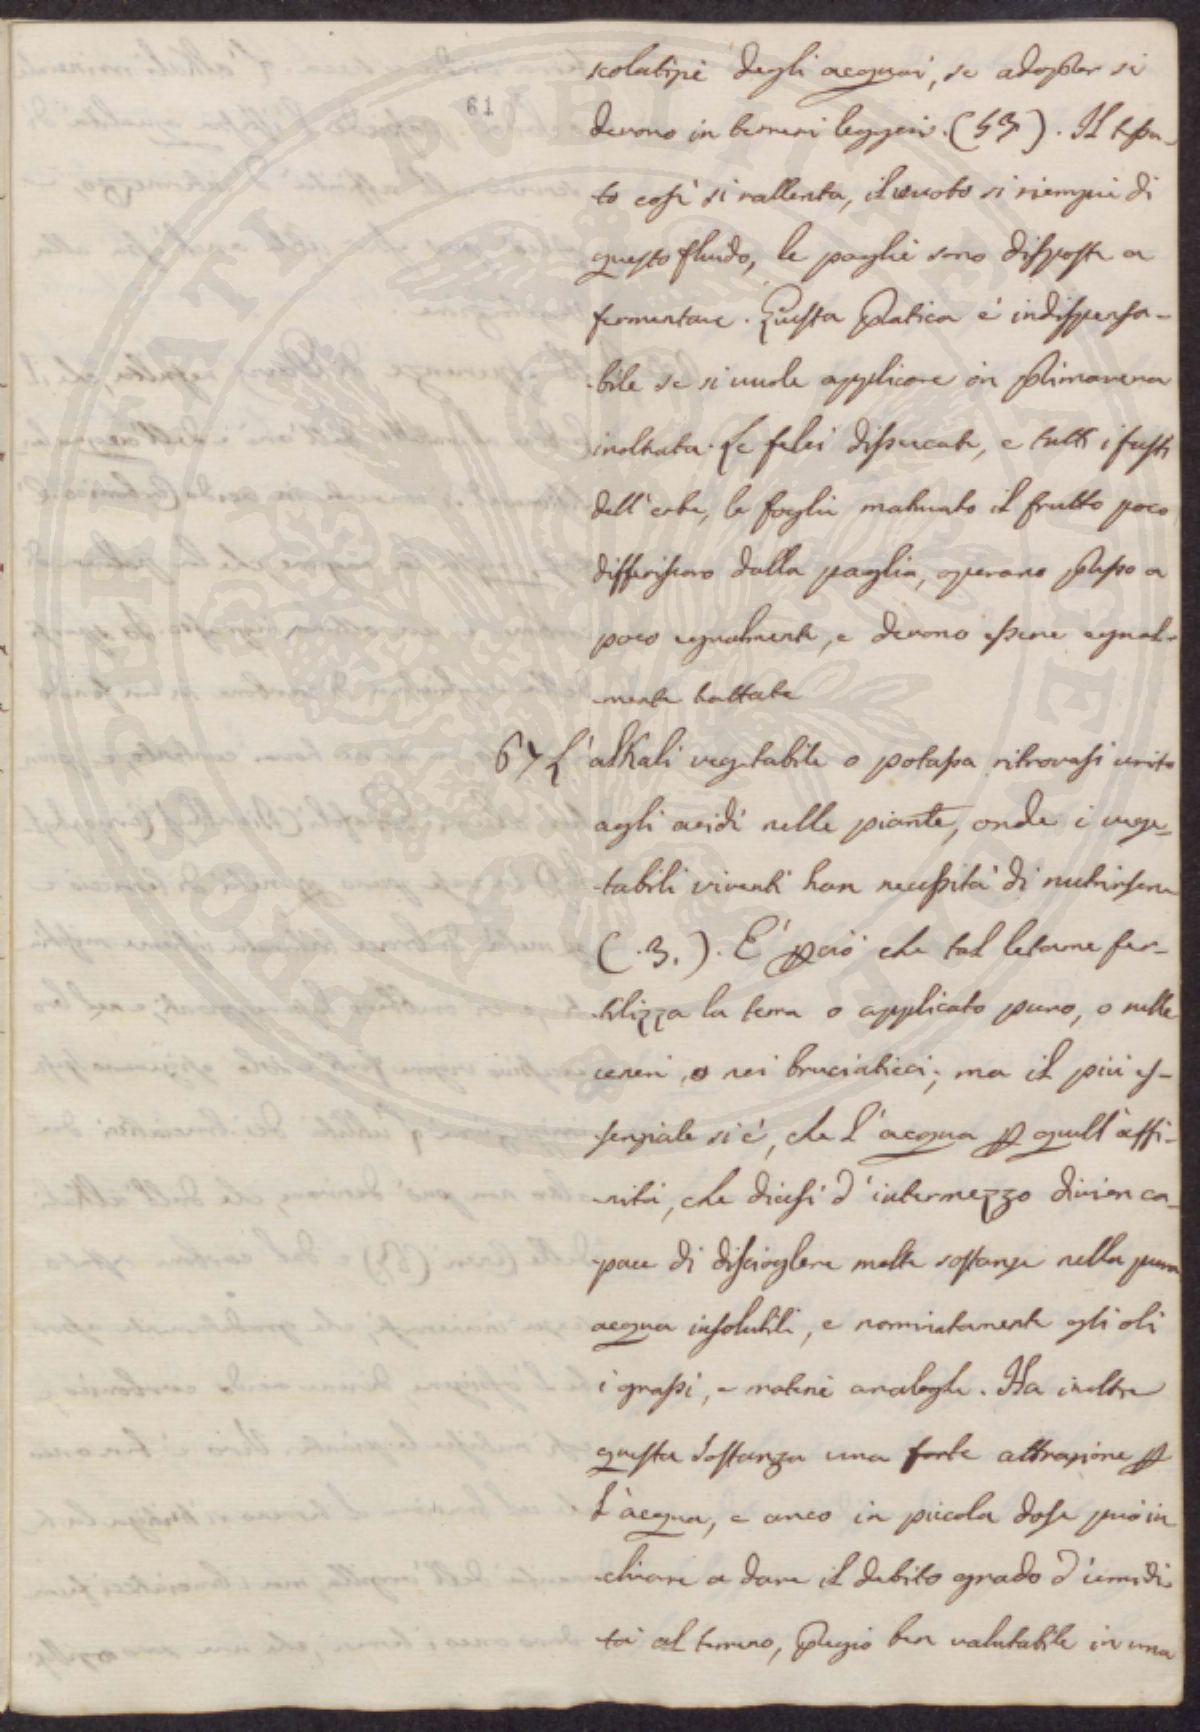 61
scolatizi degli acquai, se adoprar si
devono in terreni leggeri. (53). Il tessu-
to così si rallenta, il vuoto si riempie di
questo fluido, le paglie sono disposte a
fermentare. Questa pratica è indispensa-
bile se si vuole applicare in primavera
inoltrata. Le felci disseccate, e tutti i fusti
dell'erbe, le foglie maturato il frutto poco
differiscono dalla paglia, operano presso a
poco egualmente, e devono essere egual-
mente trattate
67 L'alKali vegetabile o potassa ritrovasi unito
agli acidi nelle piante, onde i vege-
tabili viventi han necessità di nutrirsene
(.3.). E' perciò che tal letame fer-
tilizza la terra o applicato puro, o nelle
ceneri, o nei bruciaticci; ma il più es-
senziale si è, che l'acqua per quell'affi-
nità, che dicesi d'intermezzo divien ca-
pace di disciogliere molte sostanze nella pura
acqua insolubili, e nominatamente gli oli
i grassi, e materie analoghe. Ha inoltre
questa sostanza una forte attrazione per
l'acqua, e anco in piccola dose può in
chinare a dare il debito grado d'umidi-
tà al terreno, pregio ben valutabile in una